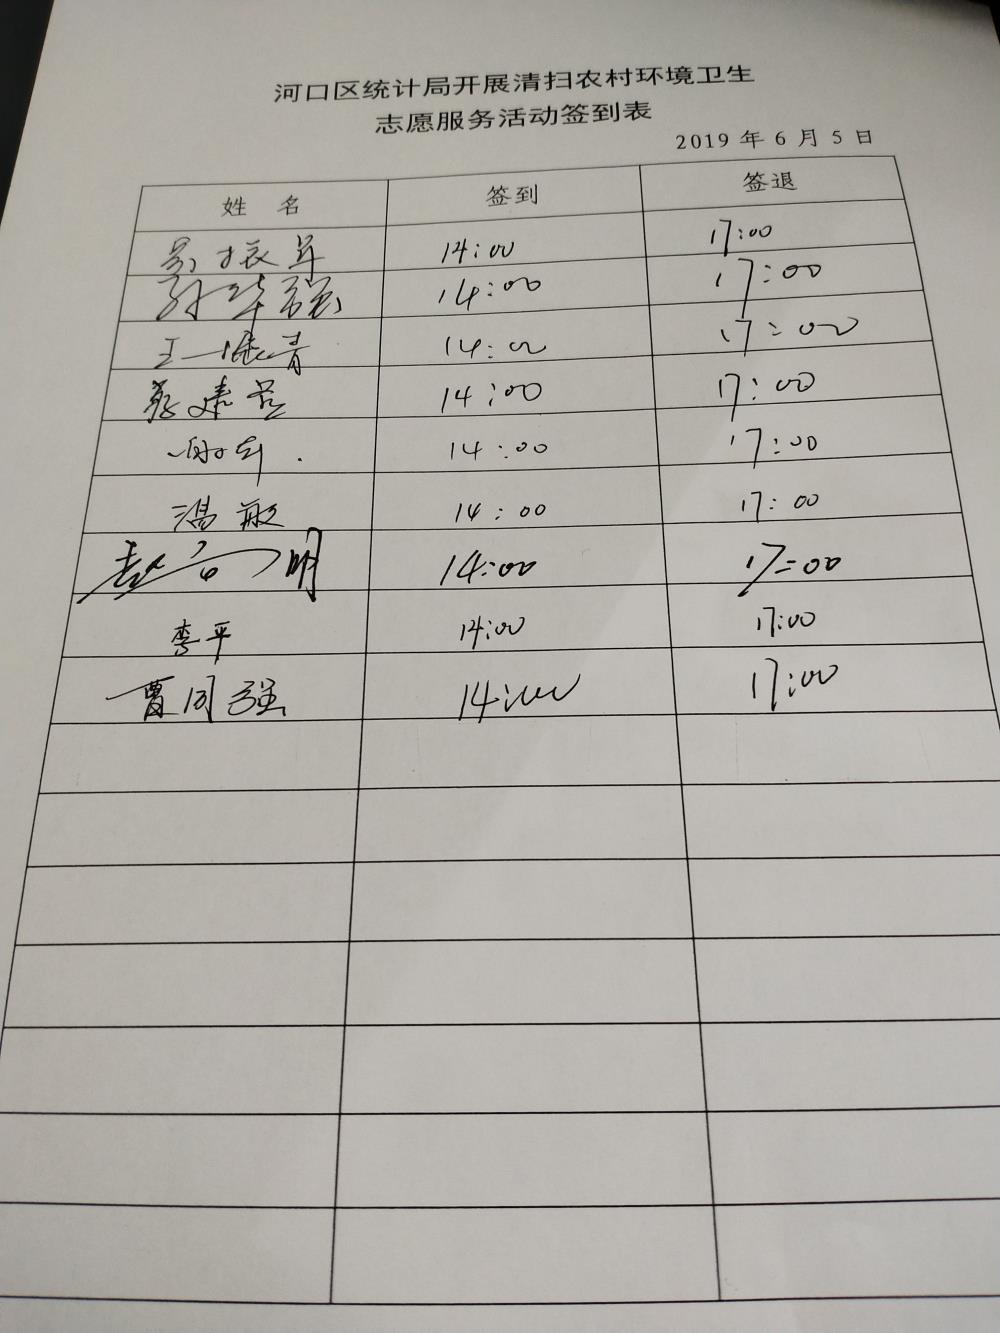 河口区统计局开展清扫农村环境卫生
志愿服务活动签到表
2019 年 6 月 5 日
姓 名 签到 签退
14:00 17:00
孙华强 14:00 17:00
王振青 14:00 17:00
14:00 17:00
14:00 17:00
冯敏 14:00 17:00
明 14:00 17:00
李平 14:00 17:00
曹同强 14:00 17:00